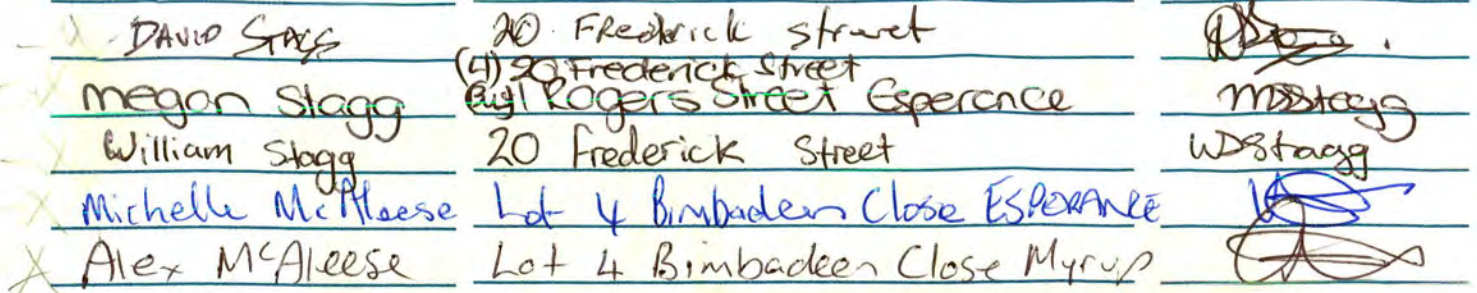 DAVID STAGG 20 Frederick street
(4) 20 Frederick Street
Megan Stagg 1 Rogers Street Esperance MSStagg
William Stagg 20 Frederick Street WDStagg
Michelle McAleese Lot 4 Bimbadeen Close ESPERANCE
Alex McAleese Lot 4 Bimbadeen Close Myrup